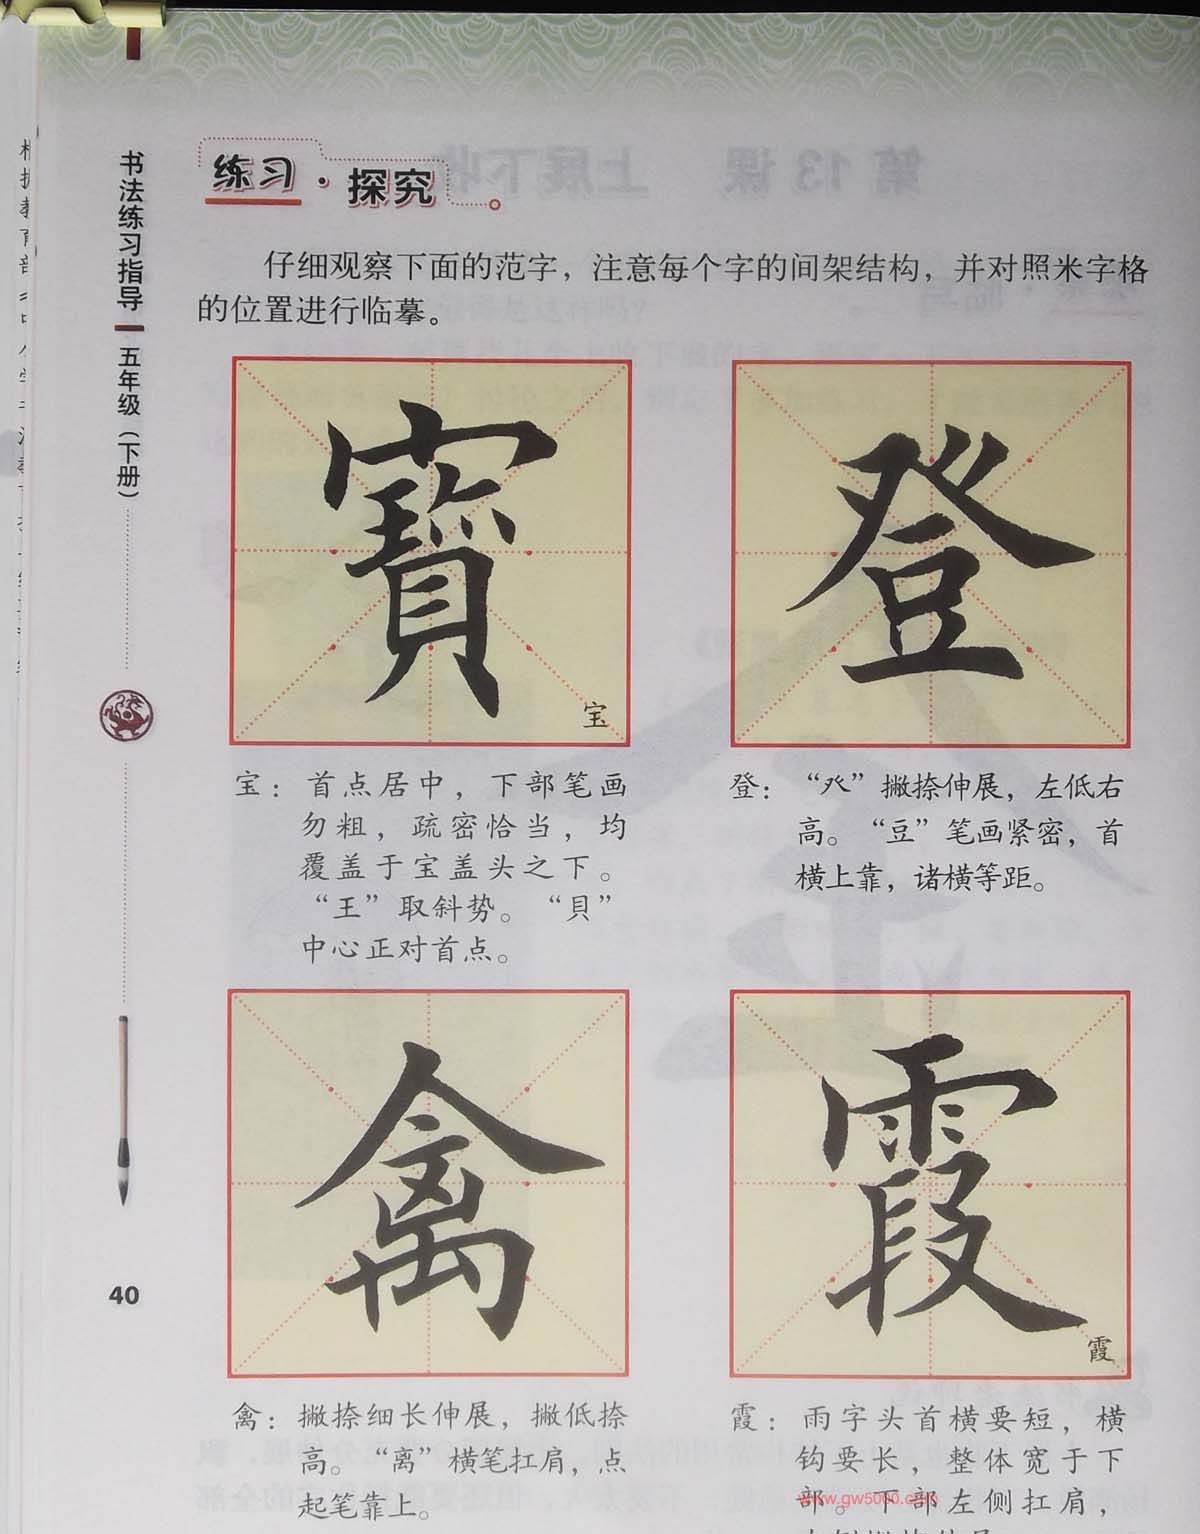 书法练习指导
五年级（下册）
40
练习·探究
仔细观察下面的范字，注意每个字的间架结构，并对照米字格
的位置进行临摹。
寶
宝
登
宝：首点居中，下部笔画
勿粗，疏密恰当，均
覆盖于宝盖头之下。
“王”取斜势。“貝”
中心正对首点。
登：“癶”撇捺伸展，左低右
高。“豆”笔画紧密，首
横上靠，诸横等距。
禽
霞
霞
禽：撇捺细长伸展，撇低捺
高。“离”横笔扛肩，点
起笔靠上。
霞：雨字头首横要短，横
钩要长，整体宽于下
部。下部左侧扛肩，
www.gw5000.com